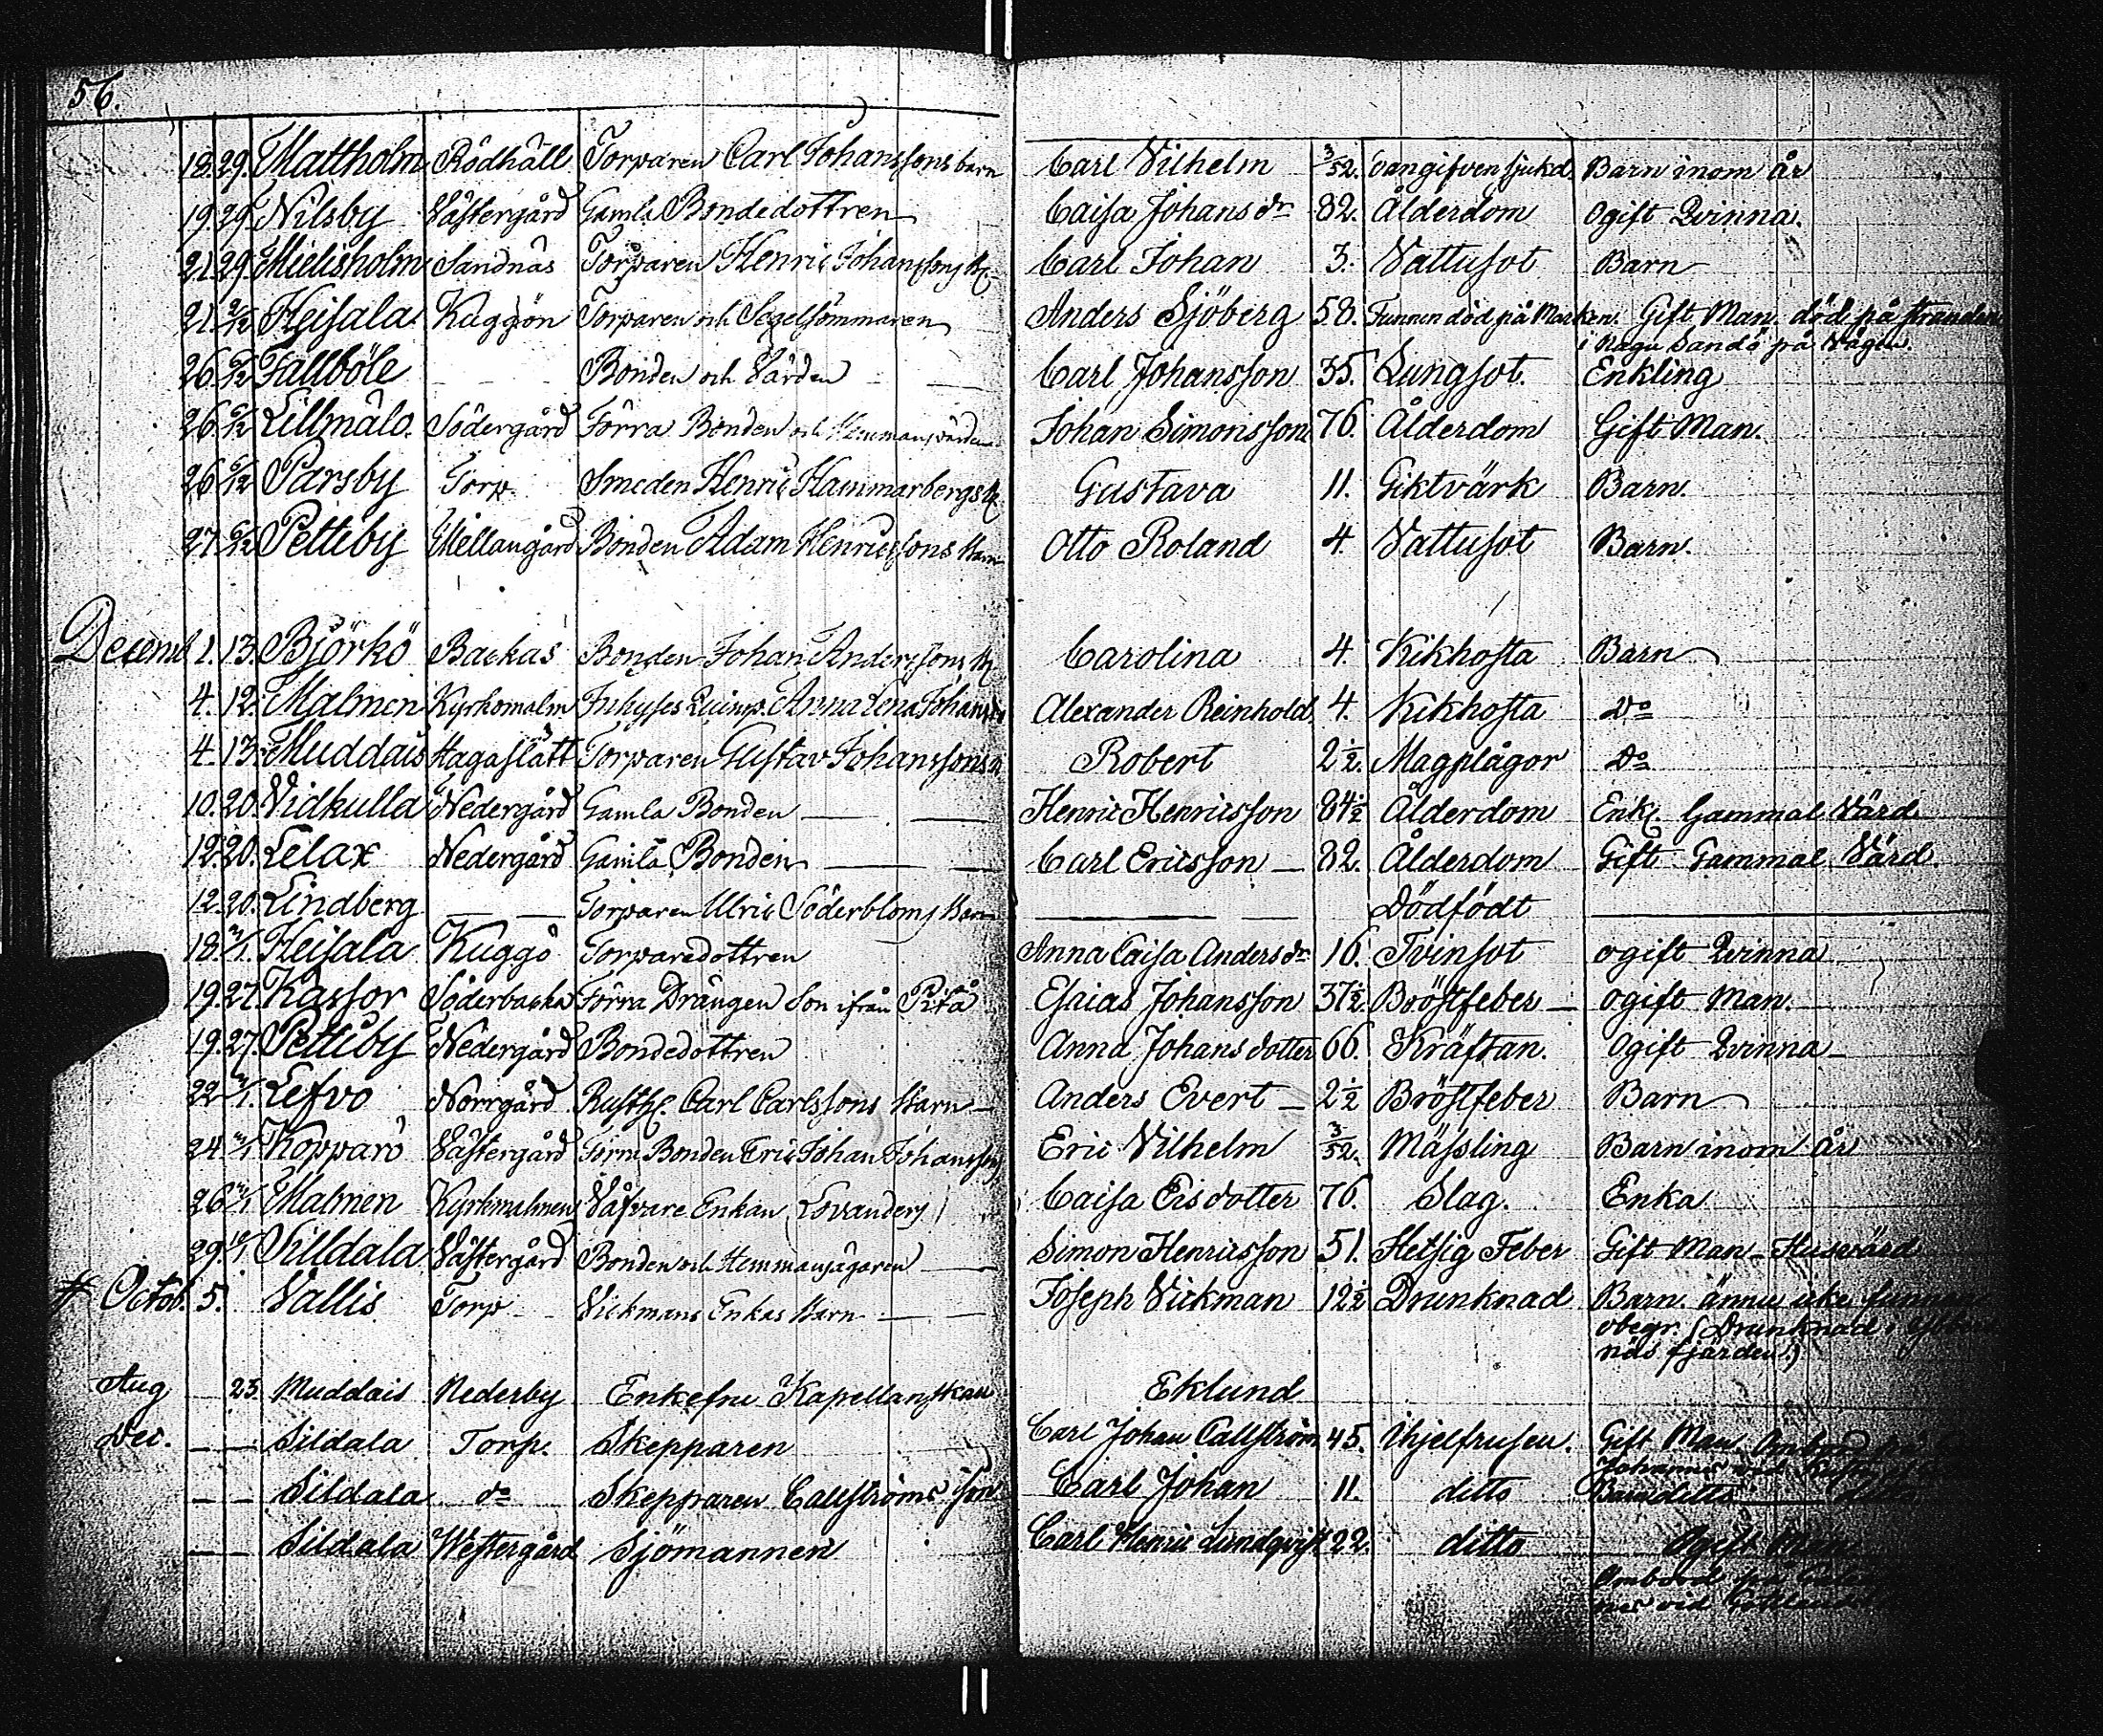 56.
18. 29. Mattholm Rödhäll Torparen Carl Johanssons barn Carl Vilhelm 3/52. oangifven sjukd. Barn inom år
19. 29. Nilsby Västergård Gamla Bondedottren Caisa Johans dr 82. Ålderdom Ogift Qvinna.
21. 29. Mielisholm Sandnäs Torparen Henric Johanssons Carl Johan 3. Vattusot Barn
21. Heisala Kuggön Torparen och Segelsömmaren Anders Sjöberg 58. Funnen död på Marken. Gift Man, död på stranden
i Nagu Sandö på Nagu.
26. 6/12 Fallböle Bonden och Värden Carl Johansson 35. Lungsot. Enkling
26. 6/12 Lillmälö. Södergård Förra Bonden och Hemmansvärden Johan Simonsson 76. Ålderdom Gift Man.
26. 6/12 Parsby Torp Smeden Henric Hammarbergs Gustava 11. Giktvärk Barn.
27. 6/12 Petteby Mellangård Bonden Adam Henricssons Barn Otto Roland 4. Vattusot Barn.
Decemb. 1. 13. Björkö Backas Bonden Johan Anderssons Carolina 4. Kikhosta Barn
4. 12. Malmen Kyrkomalm Inhyses Qvinnp. Anna Lena Johans Alexander Reinhold 4. Kikhosta Do
4. 13. Muddais Hagaslätt Torparen Gustav Johanssons Robert 2 1/2. Magplågor Do
10. 20. Vidkulla Nedergård Gamla Bonden Henric Henricsson 84 1/2 Ålderdom Enkl. Gammal Värd
12. 20. Lelax Nedergård Gamla Bonden Carl Ericsson 82. Ålderdom Gift Gammal Värd
12. 20. Lindberg Torparen Ulric Söderbloms Barn Dödfödt
18. Heisala Kuggö Torparedottren Anna Caisa Anders dr 16. Tvinsot ogift Qvinna
19. 27. Kassor Söderbacka Förra Drängen Son ifrån Piså Esaias Johansson 37 1/2 Bröstfeber ogift Man.
19. 27. Petteby Nedergård Bondedottren Anna Johans dotter 66. Kräftan. Ogift Qvinna
22. Lefvo Norrgård Rusth. Carl Carlssons Barn Anders Evert 2 1/2 Bröstfeber Barn
24. Kopparö Västergård Bonden Eric Johan Johanssons Eric Vilhelm 3/52. Mässling Barn inom år
26. Malmen Kyrkmalmen Väfvare Enkan Lovanders Caisa Ersdotter 76. Slag. Enka
29. Silldala Västergård Bonden och Hemmansägaren Simon Henricsson 51. Hetsig Feber Gift Man Husvärd
# Octob. 5. Vallis Torp Vickmans Enkas Barn Joseph Vickman 12 1/2 Drunknad Barn. ännu icke funnen
obegr. (Drunknad i
näs fjärden.)
Aug 23. Muddais Nederby Enkefru Kapellanskan Eklund
Dec. Sildala Torp. Skepparen Carl Johan Callström 45. Ihjelfrusen. Gift Man. Ombord på
Johannes vid
Sildala do Skepparen Callströms Son Carl Johan 11. ditto Barn ditto
Sildala Westergård Sjömannen Carl Henric Lundqvist 22. ditto Ogift Man
Ombord på
vid